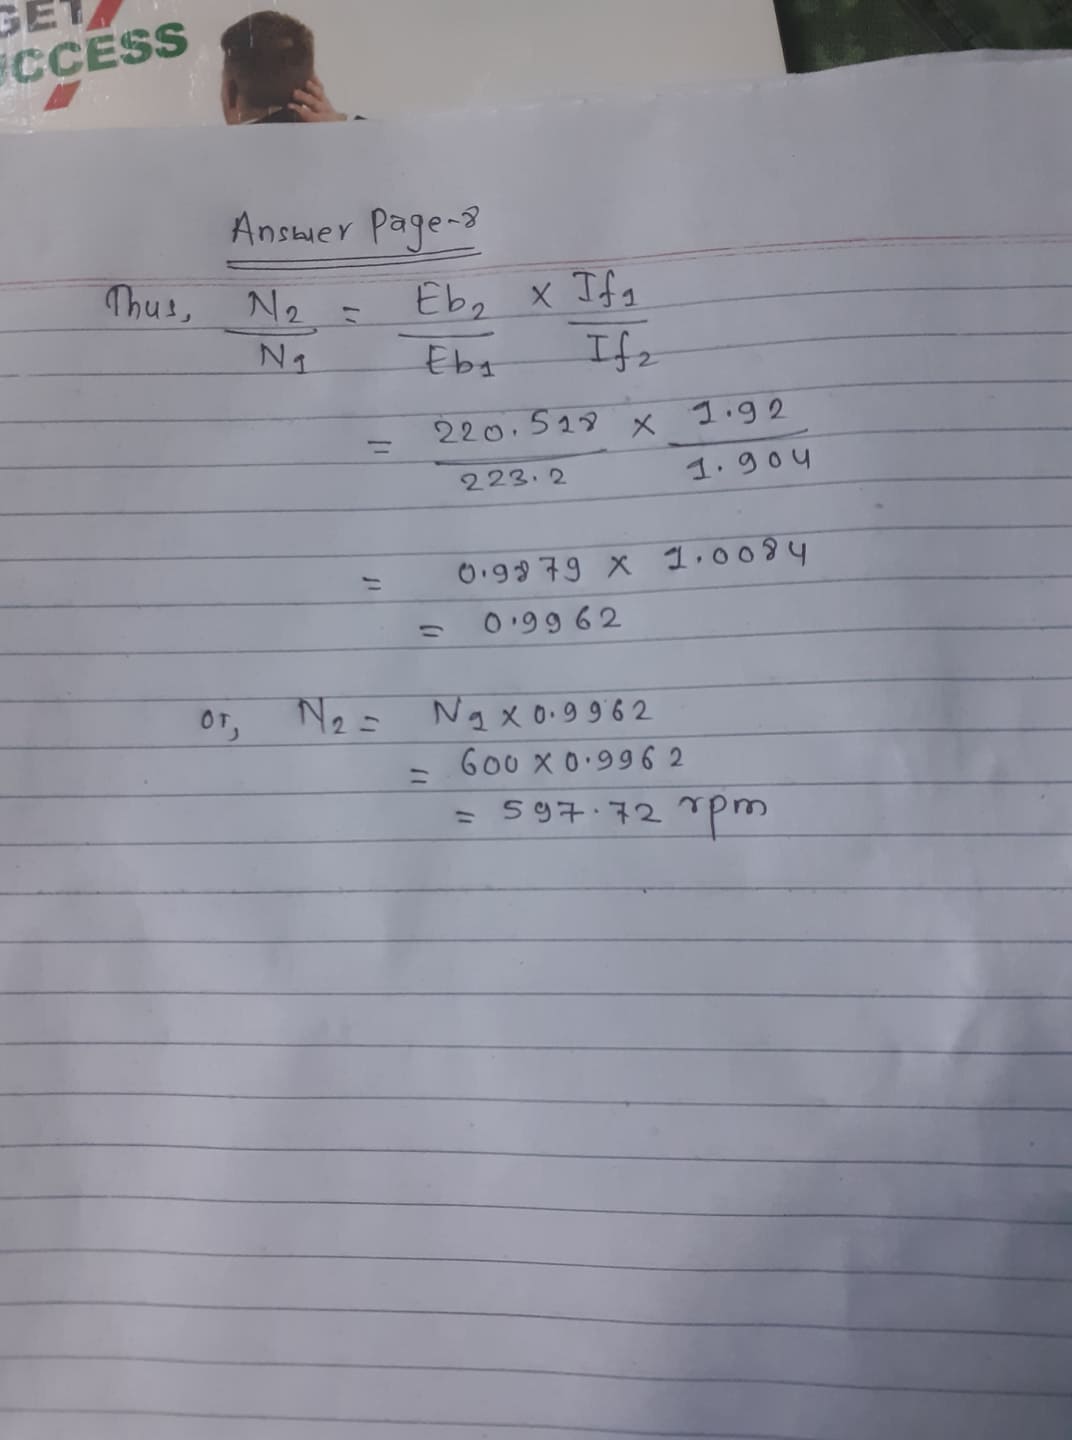 GET
UCCESS
Answer Page-8
Thus, N2/N1 = Eb2/Eb1 × If1/If2
= 220.518/223.2 × 1.92/1.904
= 0.9879 × 1.0084
= 0.9962
or, N2 = N1 × 0.9962
= 600 × 0.9962
= 597.72 rpm